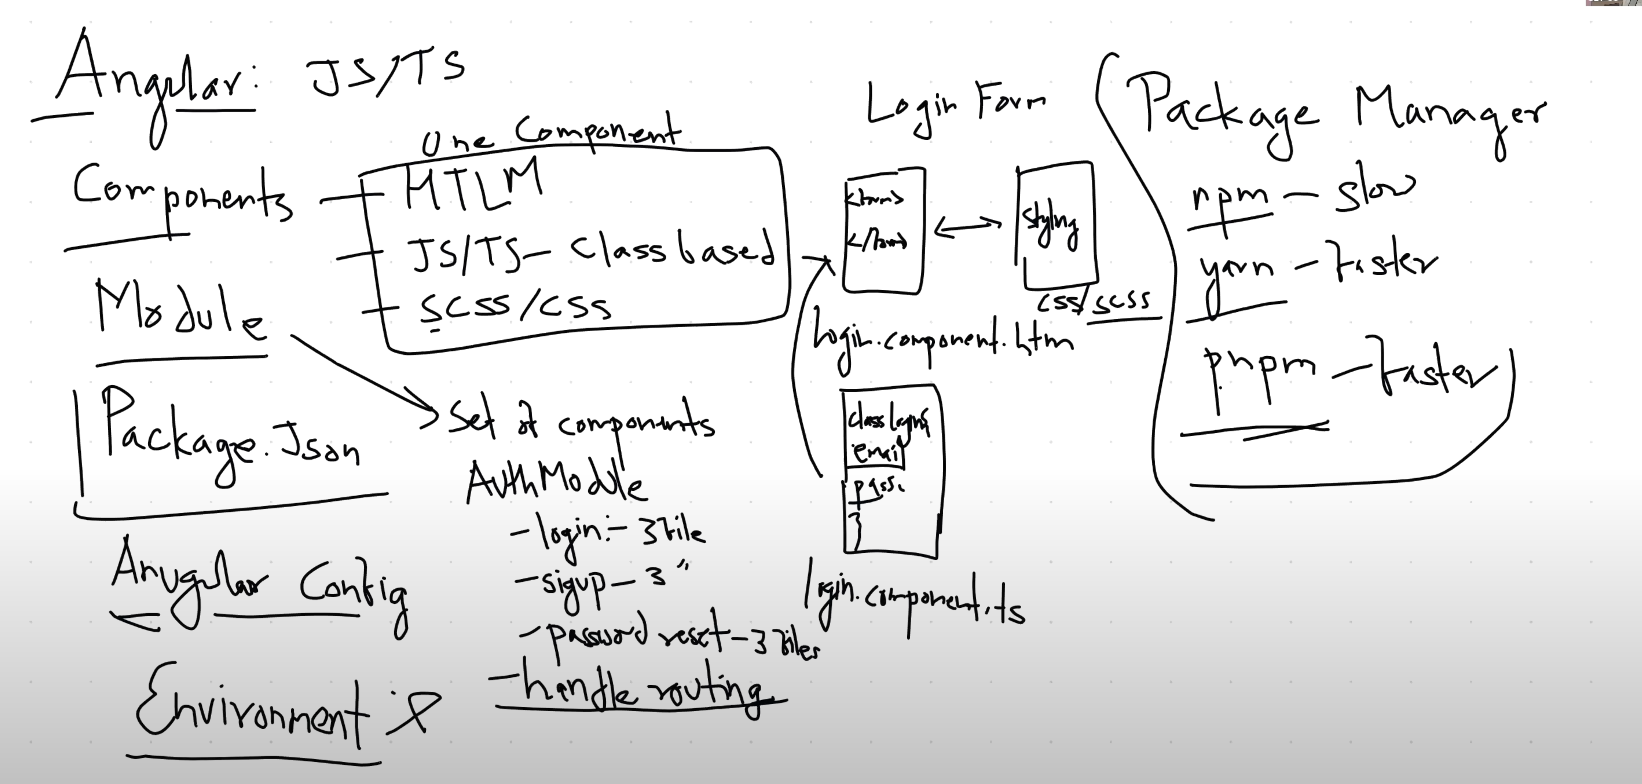 Angular: JS/TS
Components
One Component
HTLM
JS/TS - Class based
SCSS/CSS
Module
Set of components
AuthModule
- login:- 3 file
- sigup - 3 "
- password reset - 3 files
- handle routing
Package.Json
Anugular Config
Environment :
Login Form
<form>
</form>
styling
css/scss
login.component.htm
class Login {
email
pass.
}
login.component.ts
Package Manager
npm - slow
yarn - faster
pnpm - faster